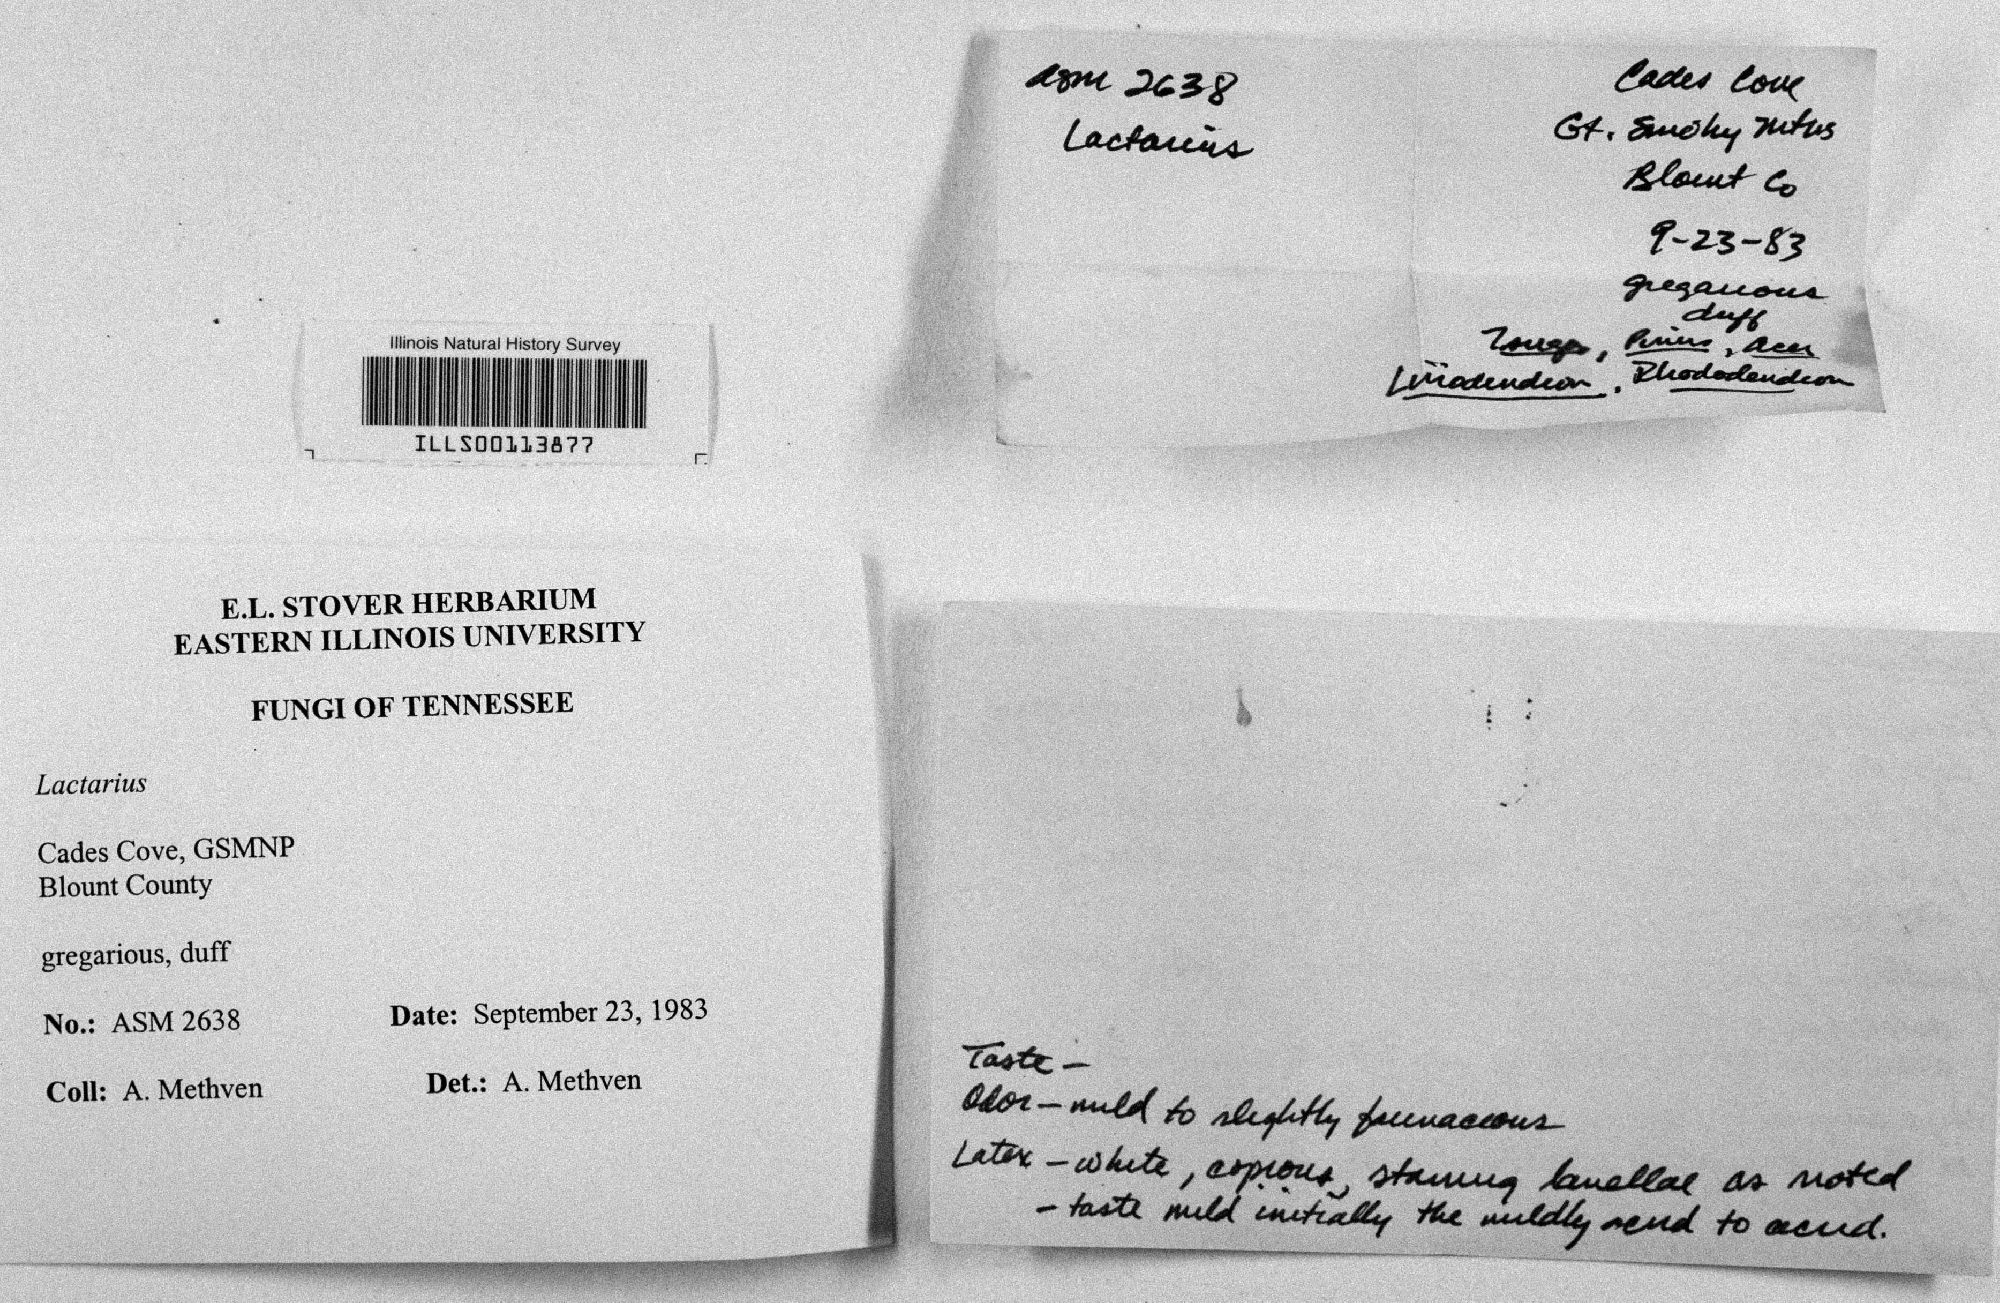 Illinois Natural History Survey
ILLS00113877
E.L. STOVER HERBARIUM
EASTERN ILLINOIS UNIVERSITY
FUNGI OF TENNESSEE
Lactarius
Cades Cove, GSMNP
Blount County
gregarious, duff
No.: ASM 2638 Date: September 23, 1983
Coll: A. Methven Det.: A. Methven
ASM 2638
Lactarius
Cades Cove
Gt. Smoky Mtns
Blount Co
9-23-83
gregarious
duff
Tsuga, Pinus, Acer
Liriodendron, Rhododendron
Taste –
Odor – mild to slightly farinaceous
Latex – white, copious, staining lamellae as noted
– taste mild initially the mildly acrid to acrid.